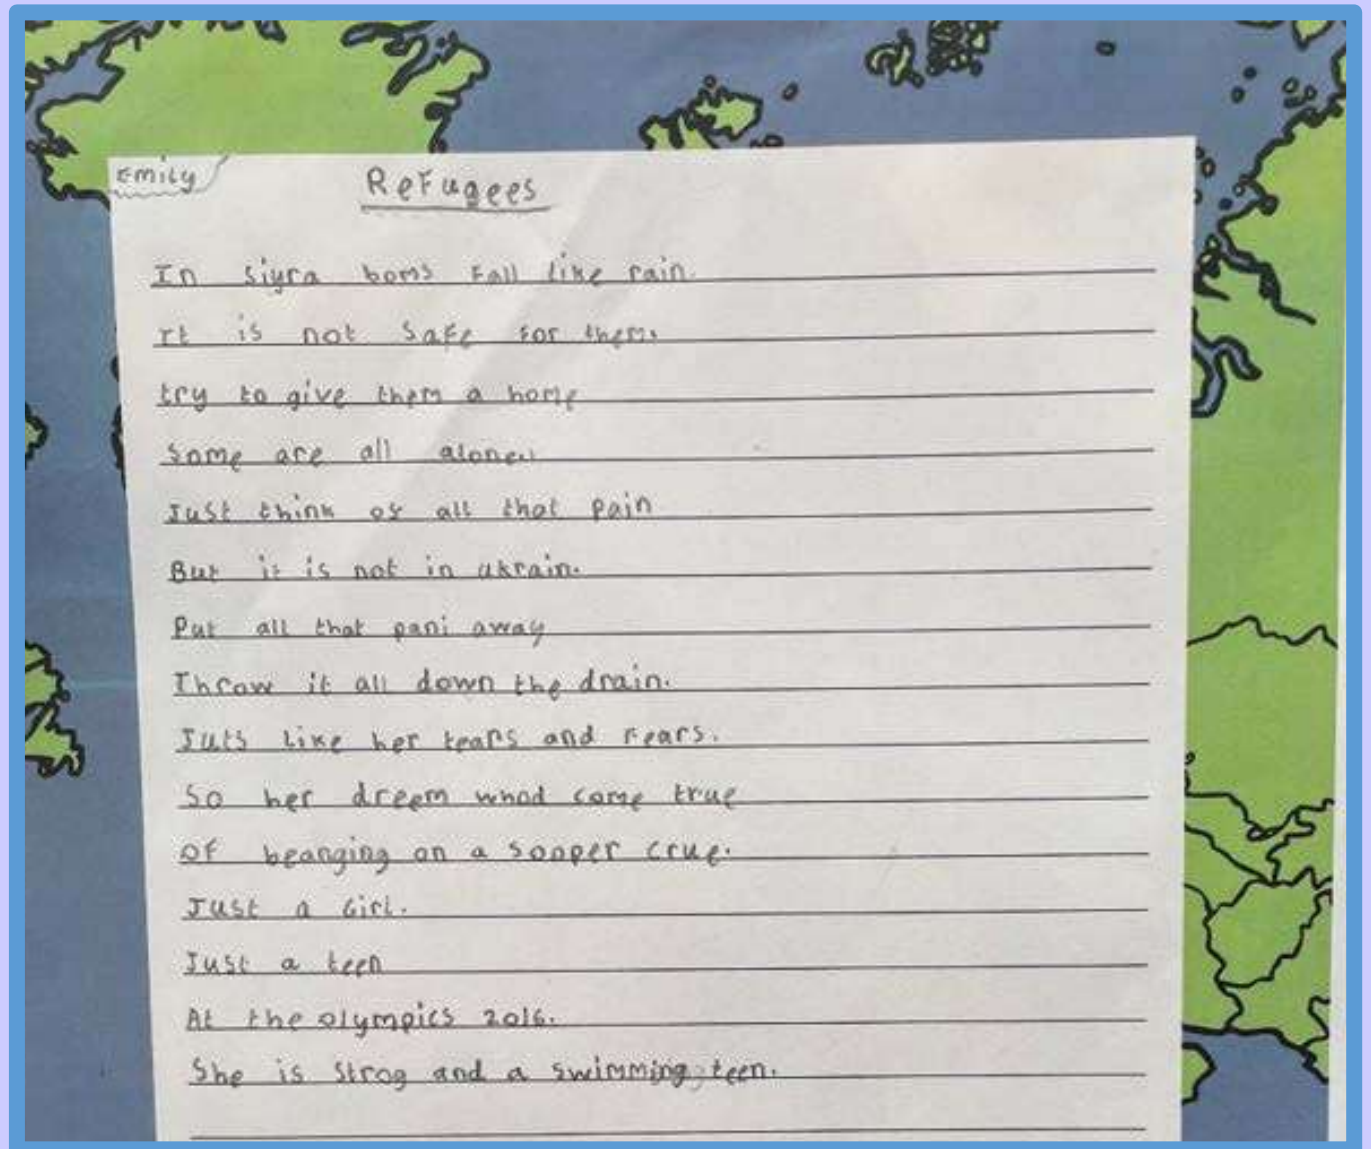 Emily
Refugees
In siyra boms fall like rain.
It is not safe for them.
try to give them a home
Some are all alone.
Just think of all that pain
But it is not in ukrain.
Put all that pani away
Throw it all down the drain.
Juts like her tears and fears.
So her dreem whod come true
Of beanging on a sooper crue.
Just a Girl.
Just a teen
At the olympics 2016.
She is strog and a swimming teen.